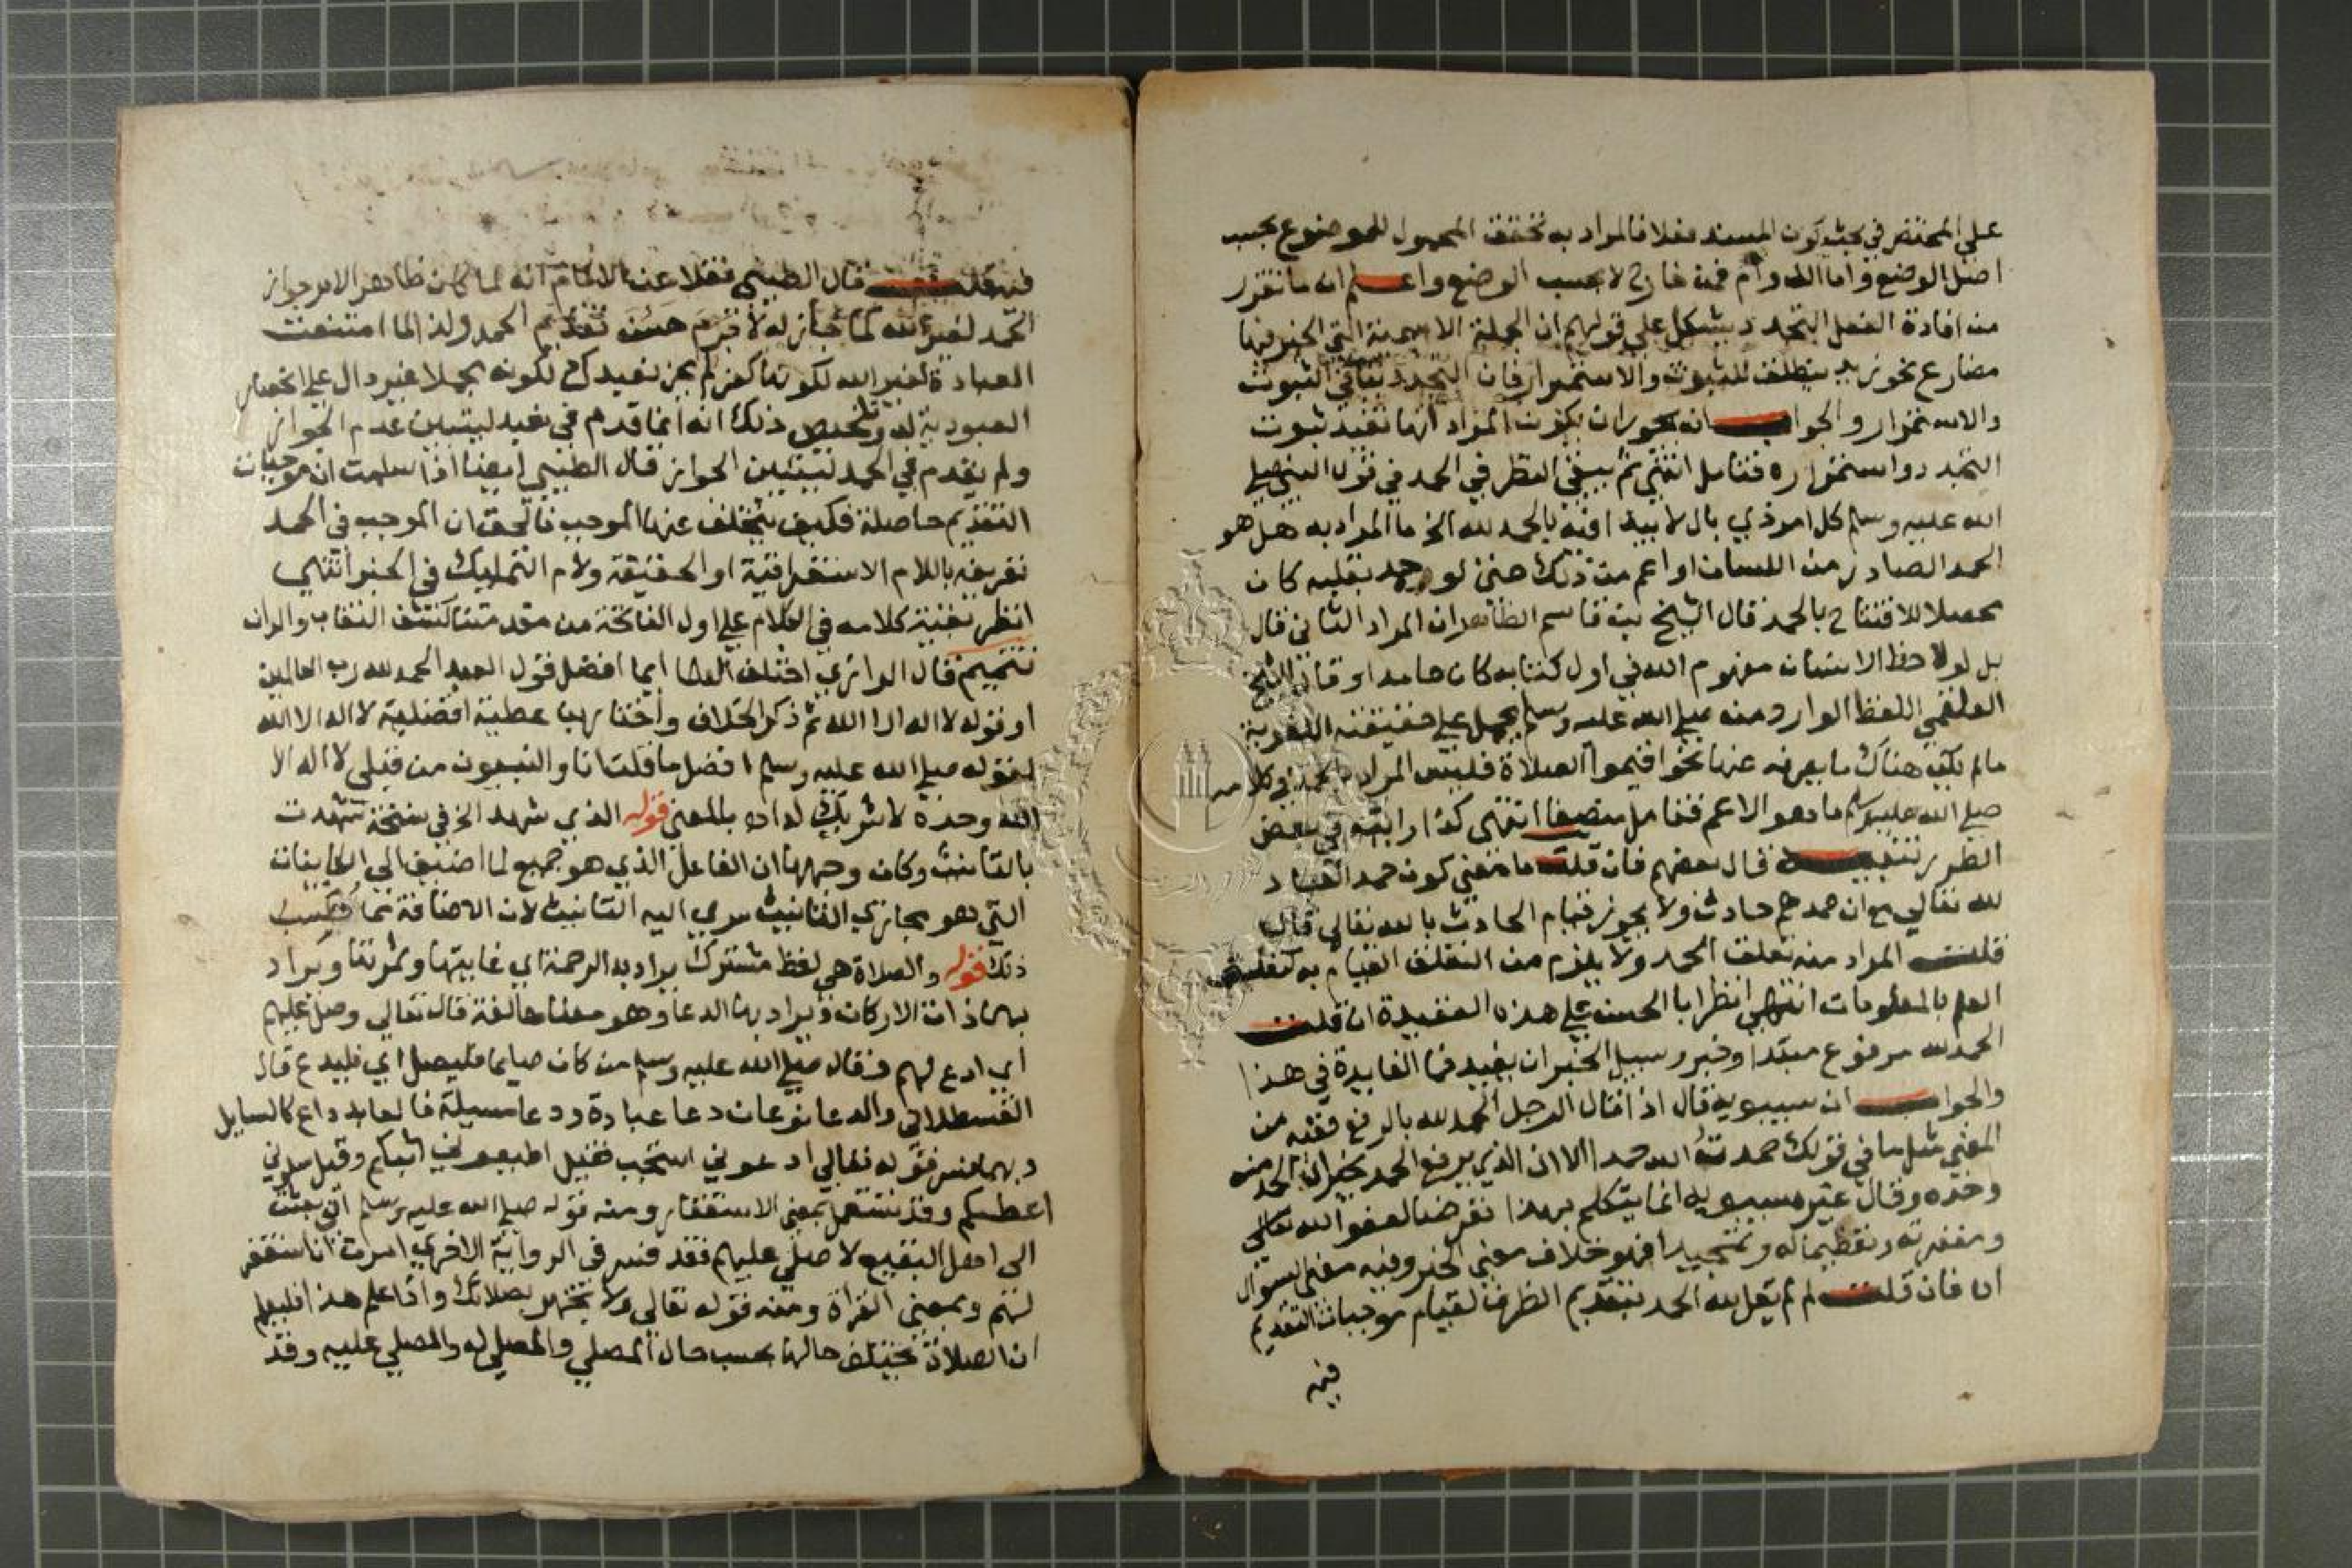 على المختصر في بحث كون المسند فعلا فالمراد به تحقق المحمول للموضوع بحسب
اصل الوضع واما الدوام فمن خارج لا بحسب الوضع واعلم ان ما تقرر
من افادة الفعل التجدد يشكل على قولهم ان الجملة الاسمية التي الخبر فيها
مضارع نحو زيد ينطلق للثبوت والاستمرار فان التجدد ينافي الثبوت
والاستمرار والجواب انه يجوز ان يكون المراد انها تفيد ثبوت
التجدد واستمراره فتامل انتهى ثم ينبغي النظر في الحمد في قول النبي صلي
الله عليه وسلم كل امر ذي بال لا يبدا فيه بالحمد لله الخ ما المراد به هل هو
الحمد الصادر من اللسان او اعم من ذلك حتى لو حمد بقلبه كان
محصلا للافتتاح بالحمد قال الشيخ بن قاسم الظاهر ان المراد الثاني قال
بل لو لاحظ الانسان مفهوم الله في اول كتابه كان حامدا وقال الشيخ
العلقمي اللفظ الوارد منه صلي الله عليه وسلم يحمل علي حقيقته اللغوية
ما لم يكن هناك ما يصرفه عنها نحو اقيموا الصلاة فليس المراد بالحمد في كلامه
صلي الله عليه وسلم ما هو الاعم فتامل منصفا انتهى كذا رايته في بعض
الطرر تنبيه قال بعضهم فان قلت ما معني كون حمد العباد
لله تعالي مع ان حمدهم حادث ولا يجوز قيام الحادث بالله تعالي قال
قلت المراد منه تعلق الحمد ولا يلزم من التعلق القيام به كتعلق
العلم بالمعلومات انتهى انظر ابا الحسن علي هذه العقيدة ان قلت
الحمد لله مرفوع مبتدا وخبر وسبيل الخبر ان يفيد فما الفايدة في هذا
والجواب ان سيبويه قال اذا قال الرجل الحمد لله بالرفع ففيه من
المعني مثل ما في قولك حمدت الله حمدا الا ان الذي يرفع الحمد يخبر ان الحمد منه
وحده وقال غير سيبويه انما يتكلم بهذا تعرضا لعفو الله تعالي
ومغفرته وتعظيما له وتمجيدا فهو خلاف معني الخبر وفيه معني السؤال
اه فان قلت لم لم يقل لله الحمد بتقديم الظرف لقيام موجبات التقديم
فيه
فيه قلت قال الطيبي نقلا عن الامام انه لما كان ظاهر الامر جواز
الحمد لغير الله كما جاز له لا جرم حسن تقديم الحمد ولذا لما امتنعت
العبادة لغير الله لكونها كفر لم يجز نعبدك لكونه محملا غير دال علي اختصاص
العبودية له وتلخيص ذلك انه انما قدم في نعبد ليتبين عدم الجواز
ولم يقدم في الحمد ليتبين الجواز قال الطيبي ايضا اذا سلمت ان موجبات
التقديم حاصلة فكيف يتخلف عنها الموجب فالحق ان الموجب في الحمد
تعريفه باللام الاستغراقية او الحقيقة ولام التمليك في الخبر انتهي
انظر بقية كلامه في الكلام علي اول الفاتحة من مقدمتنا كشف النقاب والران
تتميم قال الرازي اختلف العلما ايما افضل قول العبد الحمد لله رب العالمين
او قوله لا اله الا الله ثم ذكر الخلاف واختار بن عطية افضلية لا اله الا الله
لقوله صلي الله عليه وسلم افضل ما قلت انا والنبيون من قبلي لا اله الا
الله وحده لا شريك له اه بالمعني قوله الذي شهد الخ في نسخة شهدت
بالتانيث وكان وجهها ان الفاعل الذي هو جميع لما اضيف الي الكاينات
التي هو مجازي التانيث سري اليه التانيث لان الاضافة مما تكسب
ذلك قوله والصلاة هي لفظ مشترك يراد به الرحمة اي غايتها وثمرتها ويراد
بها ذات الاركان ويراد بها الدعا وهو معناها لغة قال تعالي وصل عليهم
اي ادع لهم وقال صلي الله عليه وسلم من كان صايما فليصل اي فليدع قال
القسطلاني والدعا نوعان دعا عبادة ودعا مسيلة فالعابد داع كالسايل
وبهما فسر قوله تعالي ادعوني استجب فقيل اطيعوني اثبكم وقيل سلوني
اعطكم وقد تستعمل بمعني الاستغفار ومنه قوله صلي الله عليه وسلم اني بعثت
الى اهل البقيع لاصلي عليهم فقد فسر في الرواية الاخري امرت ان استغفر
لهم وبمعني القراة ومنه قوله تعالى ولا تجهر بصلاتك واذا علم هذا فليعلم
ان الصلاة يختلف حالها بحسب حال المصلي والمصلي له والمصلي عليه وقد